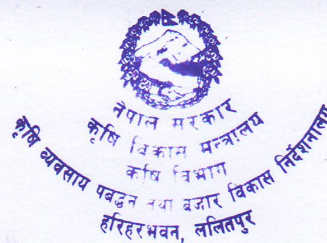 नेपाल सरकार
कृषि विकास मन्त्रालय
कृषि विभाग
कृषि व्यवसाय पबद्धन तथा बजार विकास निर्देशनालय
हरिहरभवन, ललितपुर